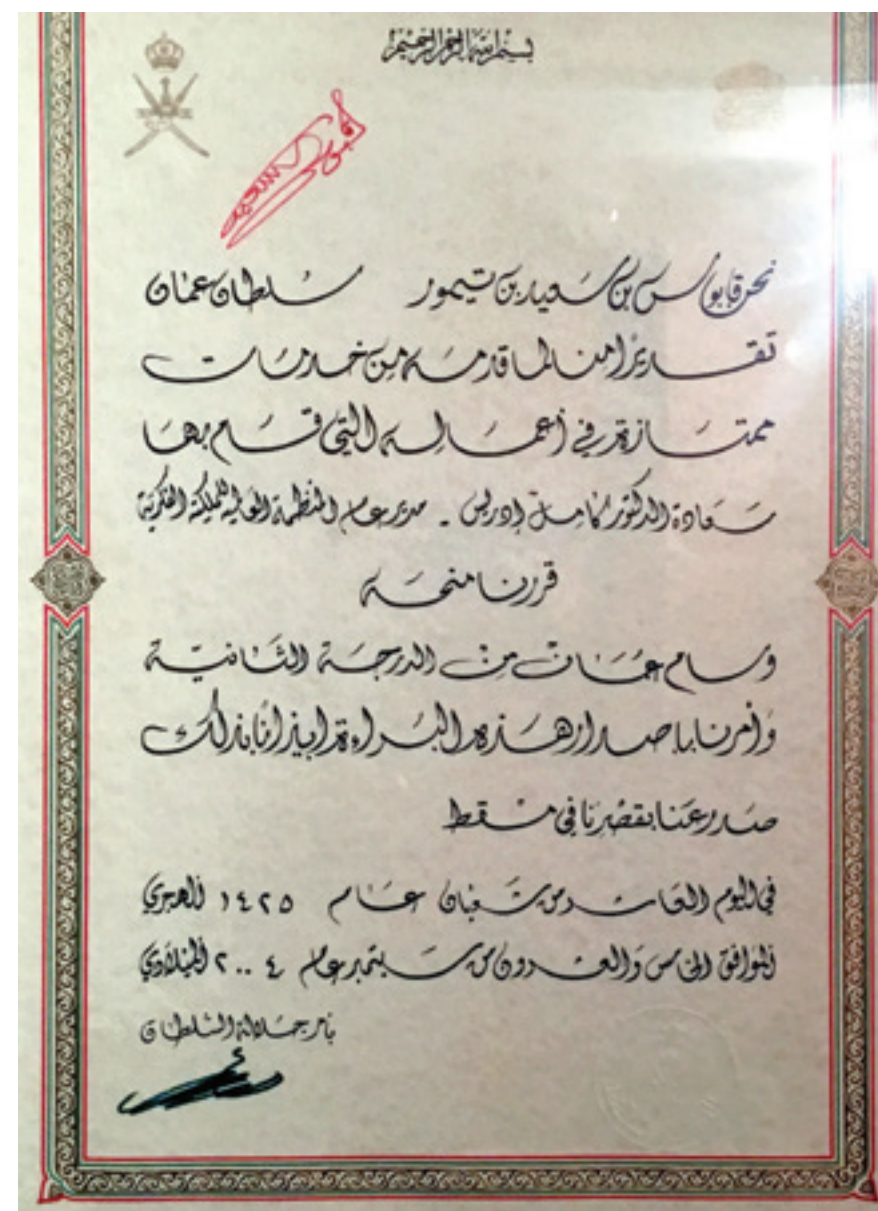 بسم الله الرحمن الرحيم
نحن قابوس بن سعيد بن تيمور سلطان عمان
تقديرا منا لما قدمه من خدمات
ممتازة في أعماله التي قام بها
سعادة الدكتور كامل إدريس - مدير عام المنظمة العالمية للملكية الفكرية
قررنا منحه
وسام عمان من الدرجة الثانية
وأمرنا بإصدار هذه البراءة إيذانا بذلك
صدر عنا بقصرنا في مسقط
في اليوم العاشر من شعبان عام ١٤٢٥ الهجري
الموافق الخامس والعشرون من سبتمبر عام ٢٠٠٤ الميلادي
بأمر جلالة السلطان